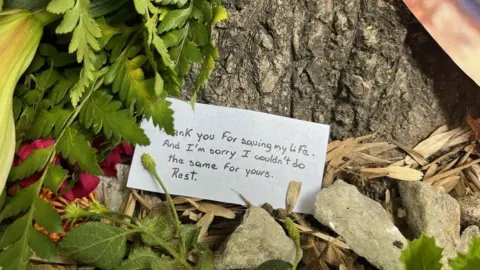 ank you for saving my life.
And I'm sorry I couldn't do
the same for yours.
Rest.